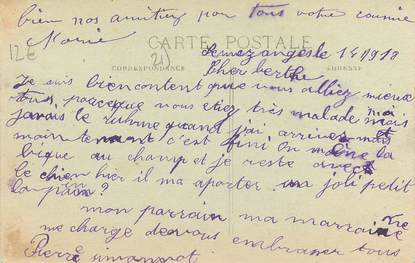 bien nos amitiez pour tous votre cousine
Marie
CARTE POSTALE
12€
21
le 1 8 1918
CORRESPONDANCE
ADRESSE
Cher berthe
Je suis bien content que vous alliez mieux
tous, parceque vous etiez très malade mai
javais le rumne quand j'ai arrivez mais
maintenant c'est fini On mène la
bique au champ et je reste avec
le chien hier il ma aporter un joli petit
lapin?
mon parrain ma marraine
me charge de vous embrasser tous
Pierre